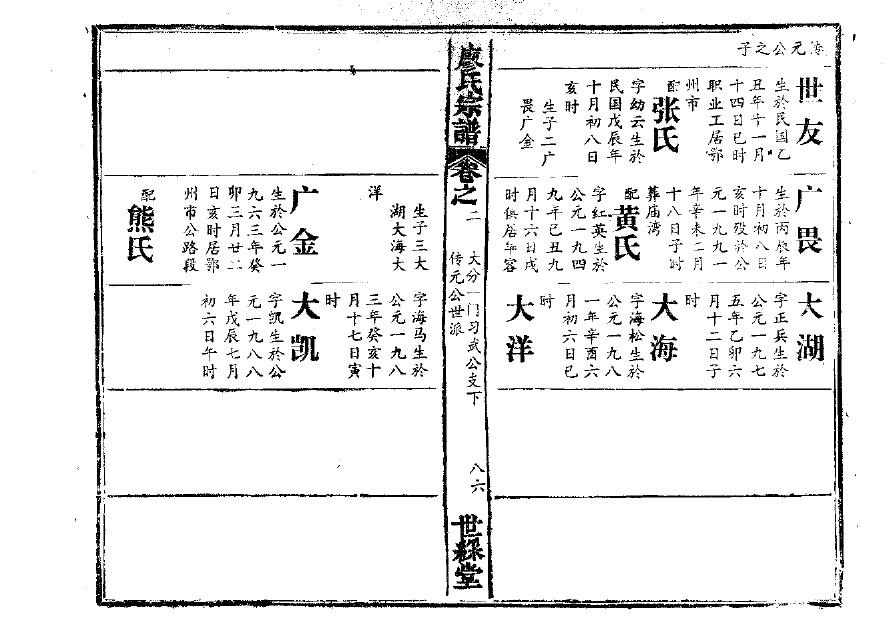 传元公之子
世友
生於民国乙
丑年十一月
十四日巳时
职业工居鄂
州市
配
张氏
字幼云生於
民国戊辰年
十月初八日
亥时
生子二广
畏广金
广畏
生於丙辰年
十月初八日
亥时殁於公
元一九九一
年辛未二月
十八日子时
葬庙湾
配
黄氏
字红英生於
公元一九四
九年己丑九
月十六日戌
时俱居华容
大湖
字正兵生於
公元一九七
五年乙卯六
月十二日子
时
大海
字海松生於
公元一九八
一年辛酉六
月初六日巳
时
大洋
廖氏宗譜
卷之二
大分一门习武公支下
传元公世派
八六
世綵堂
生子三大
湖大海大
洋
广金
生於公元一
九六三年癸
卯三月廿二
日亥时居鄂
州市公路段
配
熊氏
字海马生於
公元一九八
三年癸亥十
月十七日寅
时
大凯
字凯生於公
元一九八八
年戊辰七月
初六日午时